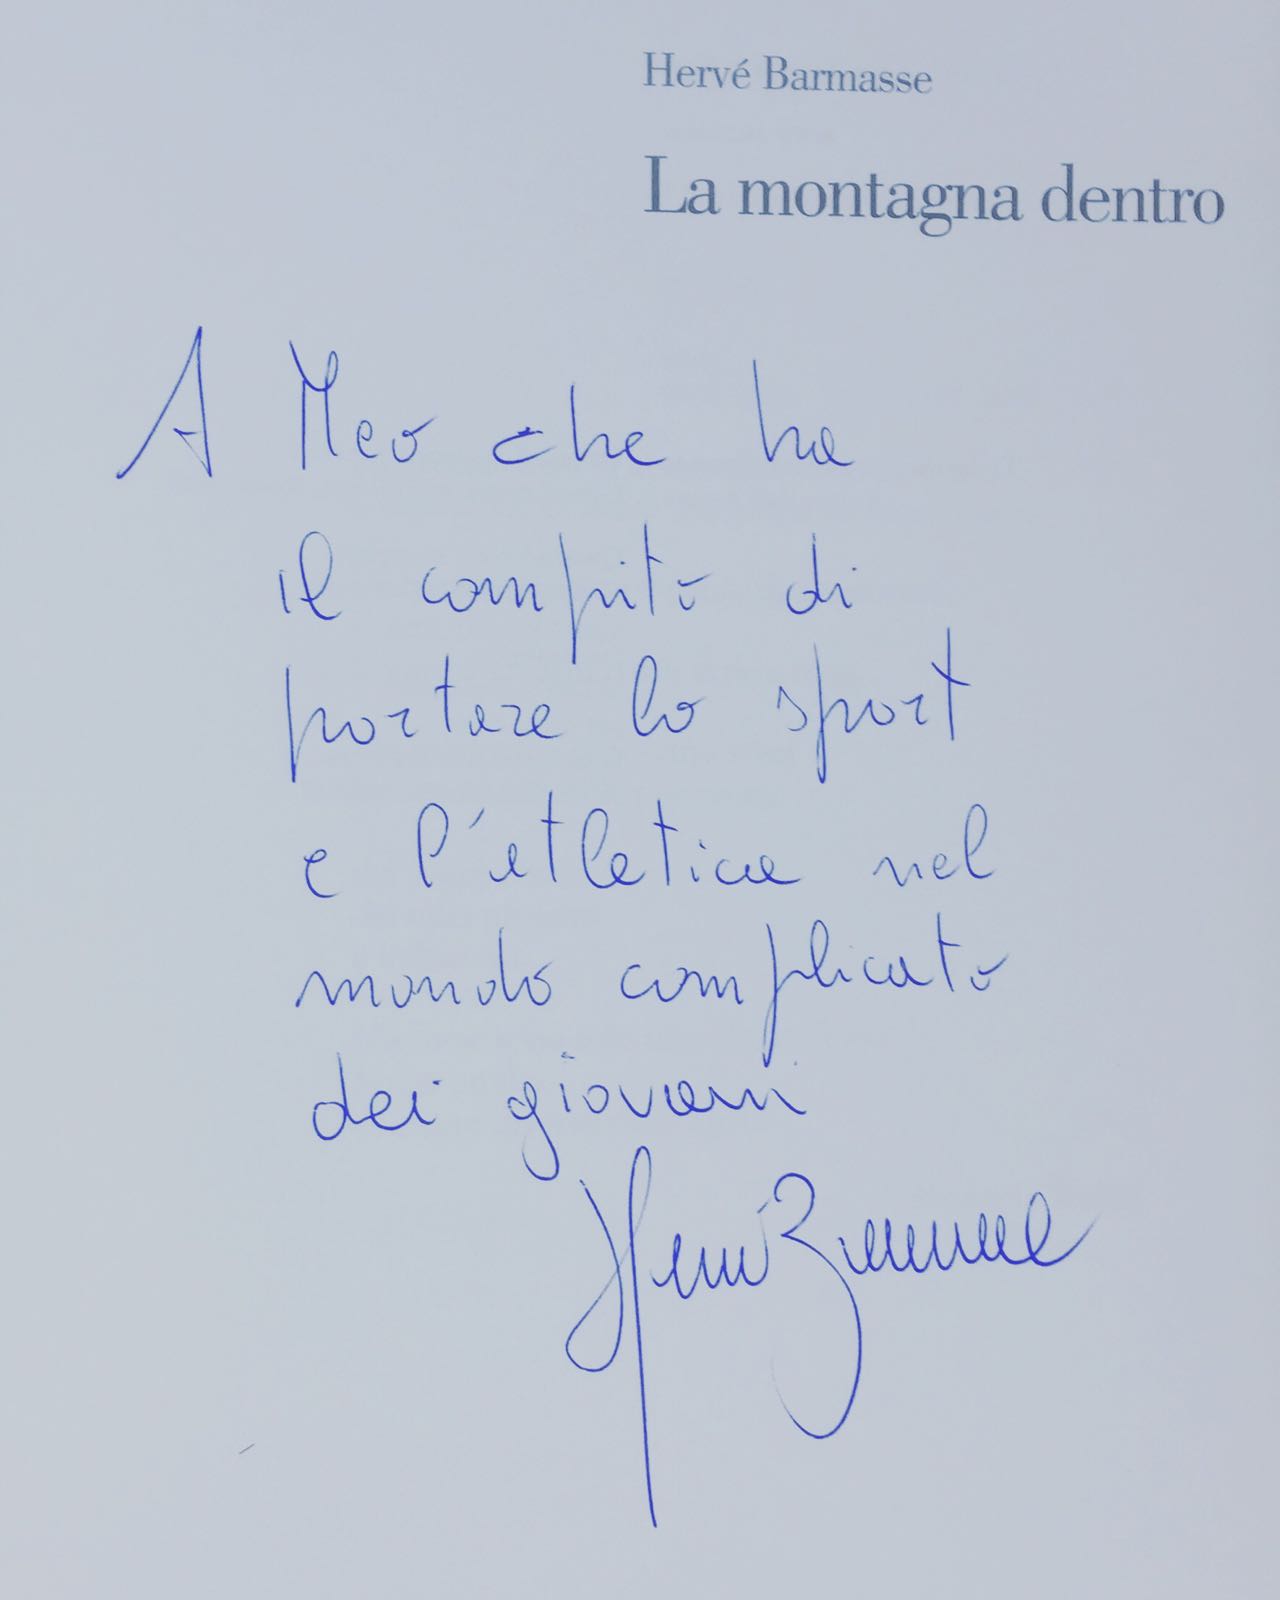 Hervé Barmasse
La montagna dentro
A Meo che ha
il compito di
portare lo sport
e l'atletica nel
mondo complicato
dei giovani
Hervé Barmasse